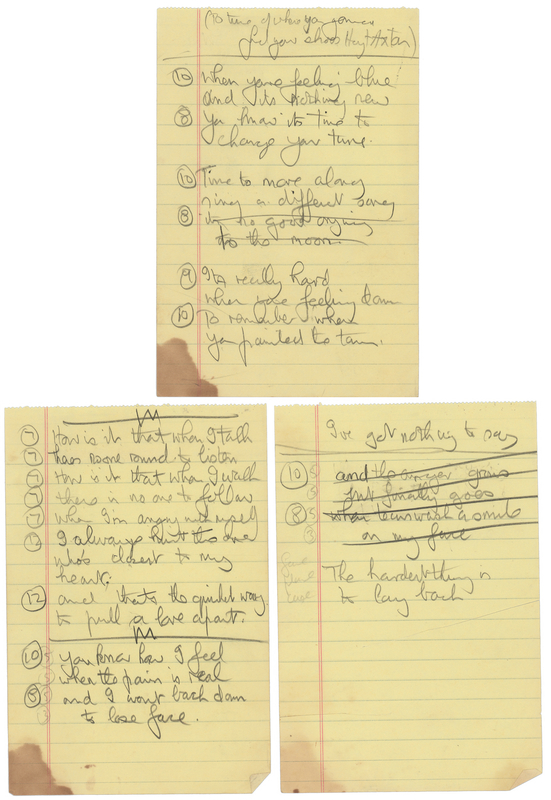 (To tune of when you gonna
fix your shoes Hoyt Axton)
10 When youre feeling blue
and its nothing new
8 You know its time to
change your tune.
10 Time to move along
sing a different song
8 its no good crying
to the moon
9 Its really hard
when youre feeling down
10 To remember when
you painted the town.
7 How is it that when I talk
7 theres no one round to listen
7 How is it that when I walk
7 there is no one to follow
7 When I'm angry with myself
I always hurt the one
who's closest to my
heart,
12 and that's the quickest way
to pull a love apart.
10 5 you know how I feel
when the pain is real
8 and I wont back down
to lose face.
I've got nothing to say
10 5 and the anger goes
5 just finally goes
8 5 when tears wash a smile
3 on my face
The hardest thing is
to lay back